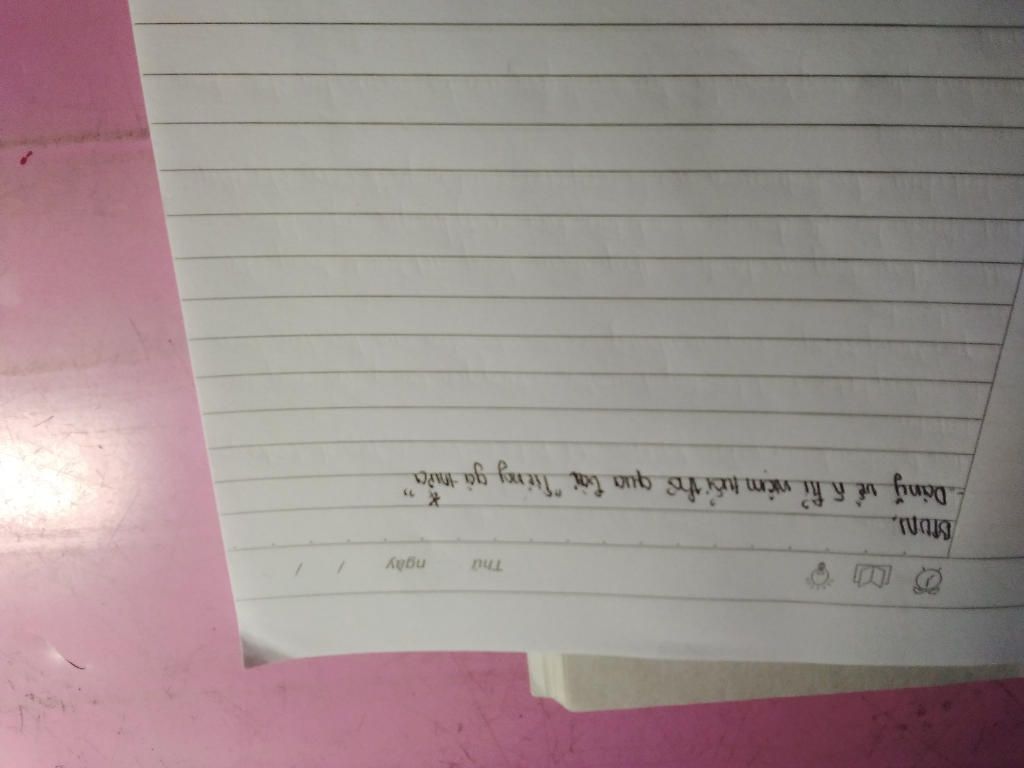 Thứ ngày / /
BTVN.
Dàn ý về k kỉ niệm tuổi thơ qua bài "Tiếng gà trưa"